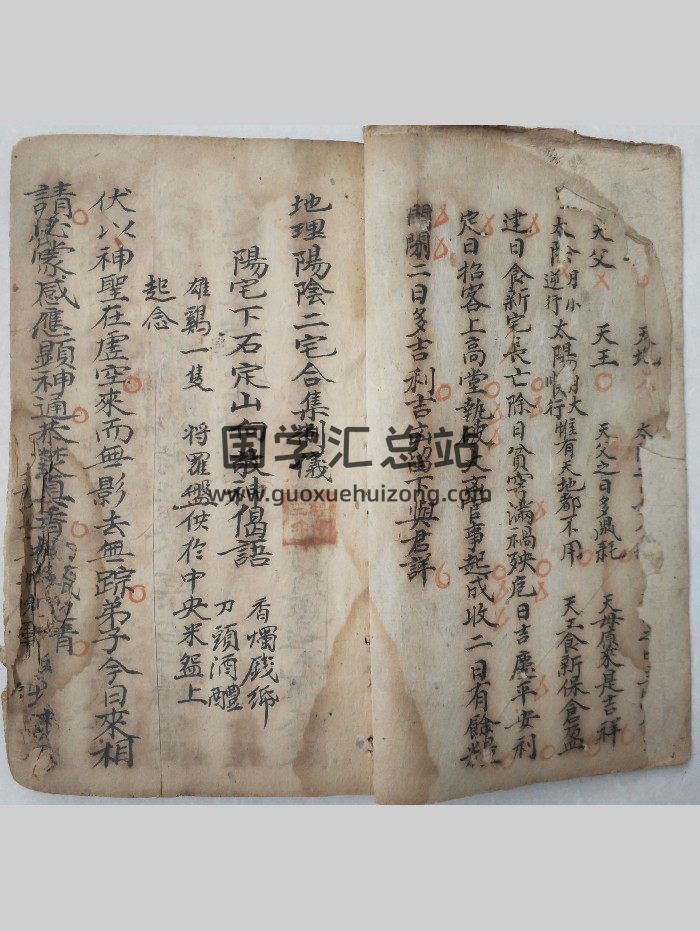 天父 天王 天父之日多鼠耗 天母原來是吉祥
太陰 月小逆行 太陽 月大順行 惟有天地都不用 天王食新保倉盈
建日食新宅長亡除日貧窮滿禍殃危日吉慶平安利
定日招客上高堂執破大凶官事起成收二日有餘糧
開閉二日多吉利 留下與君詳
地理陽陰二宅合集 儀
陽宅下石定山 神偈語
香燭錢紙
刀頭酒醴
雄鷄一隻 將羅盤供於中央米盌上
起念
伏以神聖在虛空來而無影去無踪弟子今日來相
請 蒙感應顯神通恭 真香
国学汇总站
www.guoxuehuizong.com